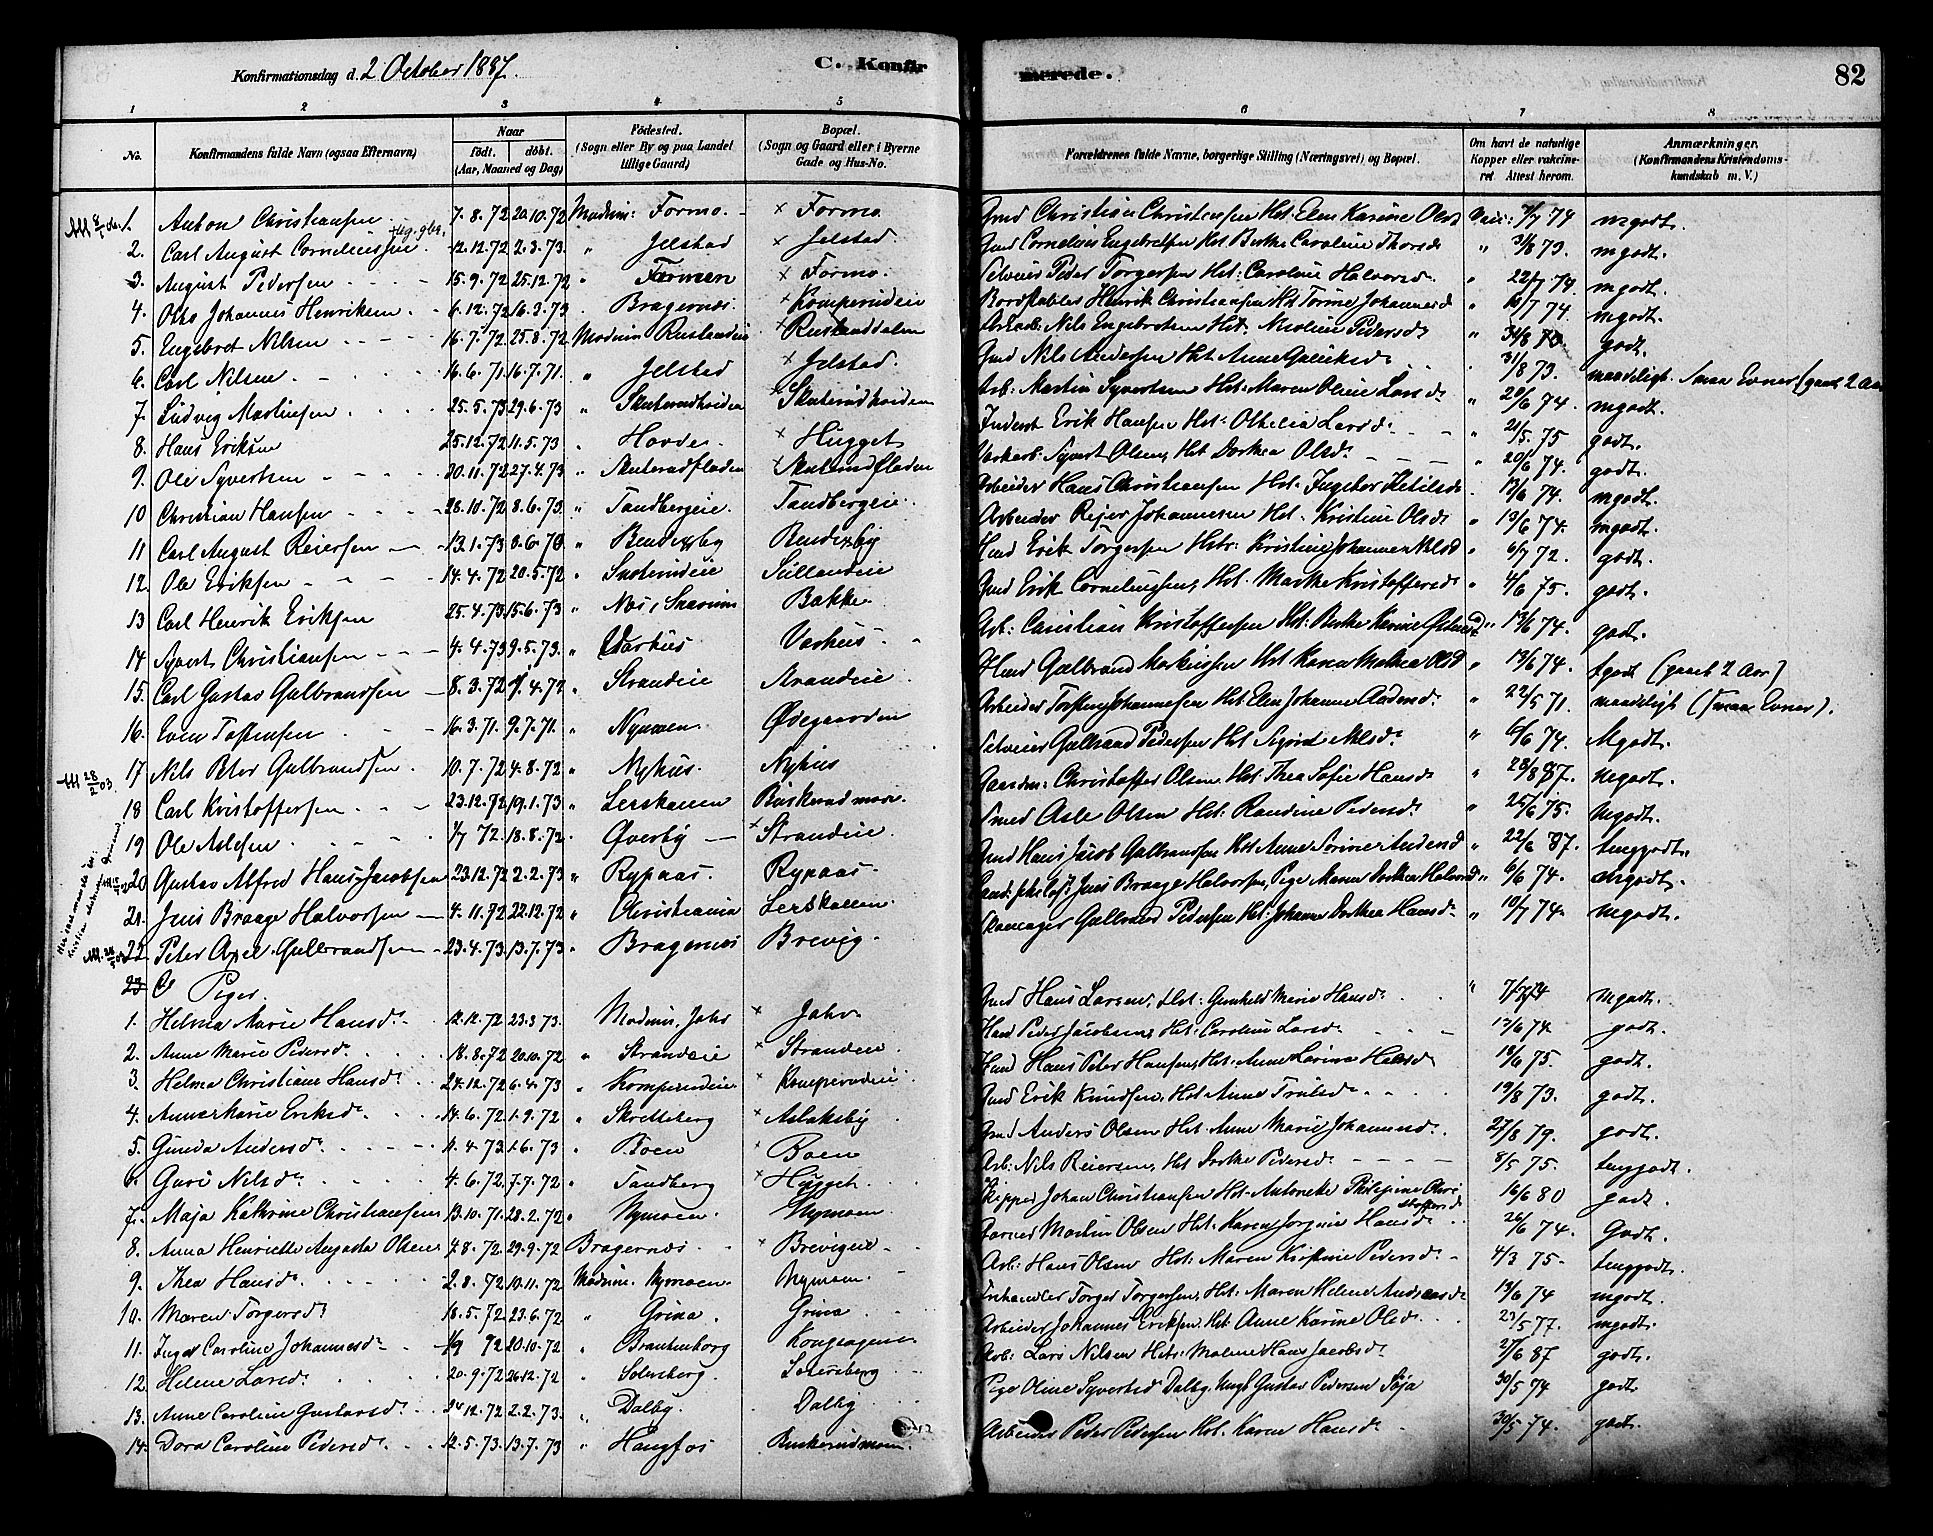 Konfirmationsdag d. 2 October 1887. C. Konfirmerede. 82
1 2 3 4 5 6 7 8
No. Konfirmandens fulde Navn (ogsaa Efternavn) Naar födt. döbt. (Aar, Maaned og Dag) Födested. (Sogn eller By og paa Landet tillige Gaard) Bopæl. (Sogn og Gaard eller i Byerne Gade og Hus-No. Forældrenes fulde Navne, borgerlige Stilling (Næringsvei) og Bopæl. Om havt de naturlige Kopper eller vakcineret. Attest herom. Anmærkninger. (Konfirmandens Kristendomskundskab m. V.)
1. Anton Christiansen 7.8.72 20.10.72 Modum: Formo Formo Gmd Christian Christensen Hst. Elen Karine Olsd 7/7 74 mgodt.
2. Carl August Corneliussen 12.12.72 2.3.73. " Jelstad Jelstad. Gmd Cornelius Engebretsen Hst Berthe Caroline Thorsd " 31/8 73. mgodt.
3. August Pedersen 15.9.72 25.12.72 " Formoen Formo. Selveier Peder Torgersen Hst: Caroline Halvorsd. " 22/7 74. mgodt.
4. Otto Johannes Henriksen 6.12.72 16.3.73 Bragernæs. Komperudeie Bordstabler Henrik Christiansen Hst Torine Johannesd " 74. mgodt.
5. Engebret Nilsen 16.7.72 25.8.72 Modum Rustandeie Rustanddalen Nils Engebretsen Hst. Nicoline Pedersd " 31/8 73. godt.
6. Carl Nilsen 16.6.71 16.7.71. " Jelstad Jelstad. Gmd Nils Andersen Hst Anne Gulliksd 31/8 73. maadeligt. Smaa Evner (gaaet 2 Aar
7. Ludvig Martinsen 25.5.73 29.6.73 " Skuterudhviden Skuterudhviden Arb: Martin Syvertsen Hst. Maren Oline Larsd " 20/6 74. mgodt.
8. Hans Eriksen 25.12.72 11.5.73 " Hovde Hugget Inderst Erik Hansen Hst: Othelia Larsd. " 21/5. 75 godt.
9. Ole Syvertsen 20.11.72 27.4.73 " Skuterudfladen Skuterudfladen Syvert Olsen, Hst Dorthea Olsd " 20/6 74. godt.
10 Christian Hansen 28.10.72 8.6.73 " Tandbergeie. Tandbergeie. Arbeider Hans Christiansen Hst. Ingebor Ketilsd. 13/6 74. mgodt.
11 Carl August Reiersen 13.1.73 " Bendixby Bendixby Arbeider Rejer Johannesen Hst. Kristine Olsd " 13/6 74. mgodt.
12. Ole Eriksen 14.4.72 20.5.72 " Sullandeie Hmd Erik Torgersen Hstr: Kristine Johanne Nilsd " 6/7 72. godt.
13 Carl Henrik Eriksen 25.4.73 15.6.73 " Næs, Snarum Bakke. Gmd Erik Corneliussen, Hst. Marthe Kristoffersd " 4/6 75. godt.
14 Syvert Christiansen 4.4.73 9.5.73. " Varhus Varhus Arb: Christian Kristoffersen Hst: Berthe Karine 13/6 74. godt.
15. Carl Gustav Gulbrandsen 8.3.72 4.72 " Strandeie Strandeie. Hmd Gulbrand Martinsen Hst Karen Mathea Olsd " 13/6 74. tgodt (gaaet 2 Aar)
16. Even Tostensen 16.3.71. 9.7.71. " Nymoen. Ødegaarden Arbeider Torsten Johannesen Hst Elen Johanne Andersd. " 22/5 71. maadeligt (smaa Evner).
17 Nils Peter Gulbrandsen. 10.7.72 4.8.72 " Nyhus. Nyhus Selveier Gulbrand Pedersen Hst Sigrid Nilsd. " 6/6 74. Mgodt.
18 Carl Kristoffersen 23.12.72 19.1.73 " Lerskallen Buskerud moen. Gaardm: Christoffer Olsen, Hst. Thea Sofie Hansd " 23/8 87. Mgodt.
19 Ole Aslesen 72. 18.8.72 " Øverby Strandeie. Smed Asle Olsen Hst. Randine Pedersd " 25/6 75. Mgodt.
20 Gustav Alfred Hans Jacobsen 23.12.72 2.2.73 " Rypaas Rypaas. Gmd Hans Jacob Gulbransen Hst. Anne Sorine Andersd " 22/6 87. temgodt.
21. Jens Braage Halvorsen 4.11.72 22.12.72 " Christiania Lerskallen. Cand: philos: Jens Braage Halvorsen, Pige Maren Dorthea Halvorsd 6/6 74. mgodt.
22 Peter Axel Gulbrandsen 23.4.73 13.7.73 " Bragernæs Brevig. Gulbrand Pedersen Hst: Johanne Dorthea Hansd. " 10/7 74. Mgodt.
23 Piger.
1. Helma Marie Hansd. 12.12.72 23.3.73. Modum, Jahr Jahr Gmd Hans Larsen, Hst. Gunhild Marie Hansd. " 74 mgodt.
2. Anne Marie Pedersd. 18.8.72 20.10.72 " Strandeie Strandeie Hmd Peder Jacobsen, Hst: Caroline Larsd. 13/6 74. godt.
3. Helma Christiane Hansd. 24.12.72 6.4.73 " Komperudeie Komperudeie Hmd Hans Peter Hansen, Hst: Anne Lovina Hansd 10/6 75. godt.
4. Anne Marie Eriksd. 14.6.72 1.9.72 " Skretteberg Aslaksby Gmd Erik Knudsen, Hst Anne Trulsd. 19/8 73. godt.
5. Gunda Andersd. 11.4.73 1.6.73 " Boen Boen Gmd Anders Olsen Hst. Anne Marie Johannesd. 27/8 79. godt.
6. Guri Nilsd. 4.6.72 7.7.72 " Tandberg Hugget. Arb: Nils Reiersen, Hst Dorthe Pedersd 8/5 75. temgodt.
7. Maja Kathrine Christiansen 13.10.71. 28.2.72 " Nymoen. Nymoen. Skipper Johan Christiansen Hst. Antonette Philipine Christoffersd 16/6 80 godt.
8. Anna Henriette Augusta Olsen 4.8.72. 29.9.72 Bragernæs Brevigeie Garver Martin Olsen Hst: Karen Jorgine Hansd. 26/6 74. Godt.
9. Thea Hansd. 2.8.72 10.11.72 Modum. Nymoen. Nymoen. Arb: Hans Olsen Hst: Maren Kristine Pedersd. 4/3 75. temgodt.
10. Maren Torgersd. 18.5.72 23.6.72 " Grina. Grina Torger Torgersen, Hst: Maren Helene Andreasd 13/6 74 mgodt.
11. Inger Caroline Johannesd. 72 20.10.72 " Brantenborg Kongsagene Arbeider Johannes Eriksen, Hst: Anne Karine Olsd. 23/5 77. mgodt.
12 Helene Larsd. 20.9.72 26.12.72 " Solersberg. Solersberg Arb: Lars Nilsen Hst: Malene Hans Jacobsd. 27/6 87 godt.
13. Anne Caroline Gustavsd. 24.12.72 2.2.73. " Dalby. Dalby. Pige Oline Syvertsd Dalby. Ungk Gustav Pedersen Søja 30/5 74 godt
14. Dora Caroline Pedersd. 12.5.73. 13.7.73 " Haugfos Buskerudmoen Arbeider Peder Pedersen Hst. Karen Hansd. 30/5 74. godt.